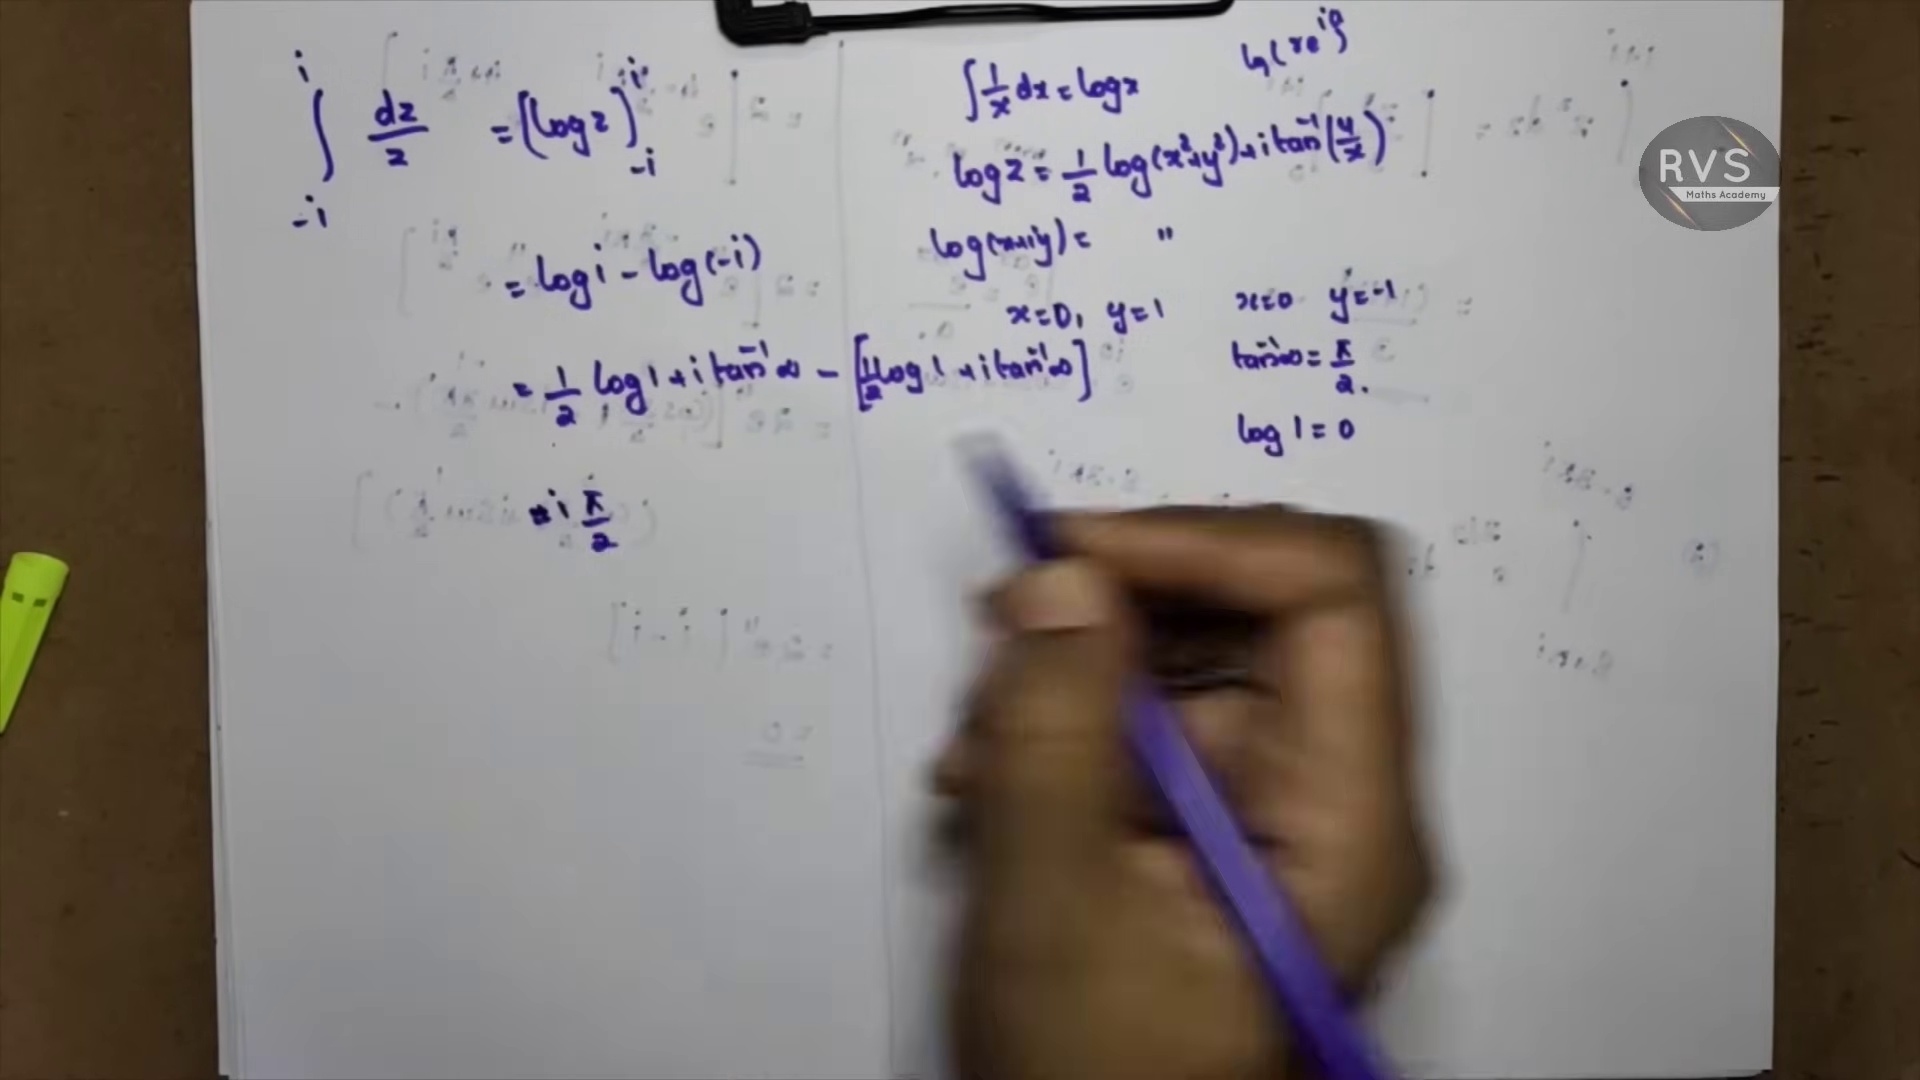 i
∫ dz/z = [log z]^i_-i
-i
= log i - log(-i)
= 1/2 log 1 + i tan⁻¹ ∞ - [1/2 log 1 + i tan⁻¹ ∞]
= i π/2
∫ 1/x dx = log x
log z = 1/2 log(x²+y²) + i tan⁻¹(y/x)
log(x+iy) = "
x=0, y=1
x=0 y=-1
tan⁻¹∞ = π/2.
log 1 = 0
RVS
Maths Academy